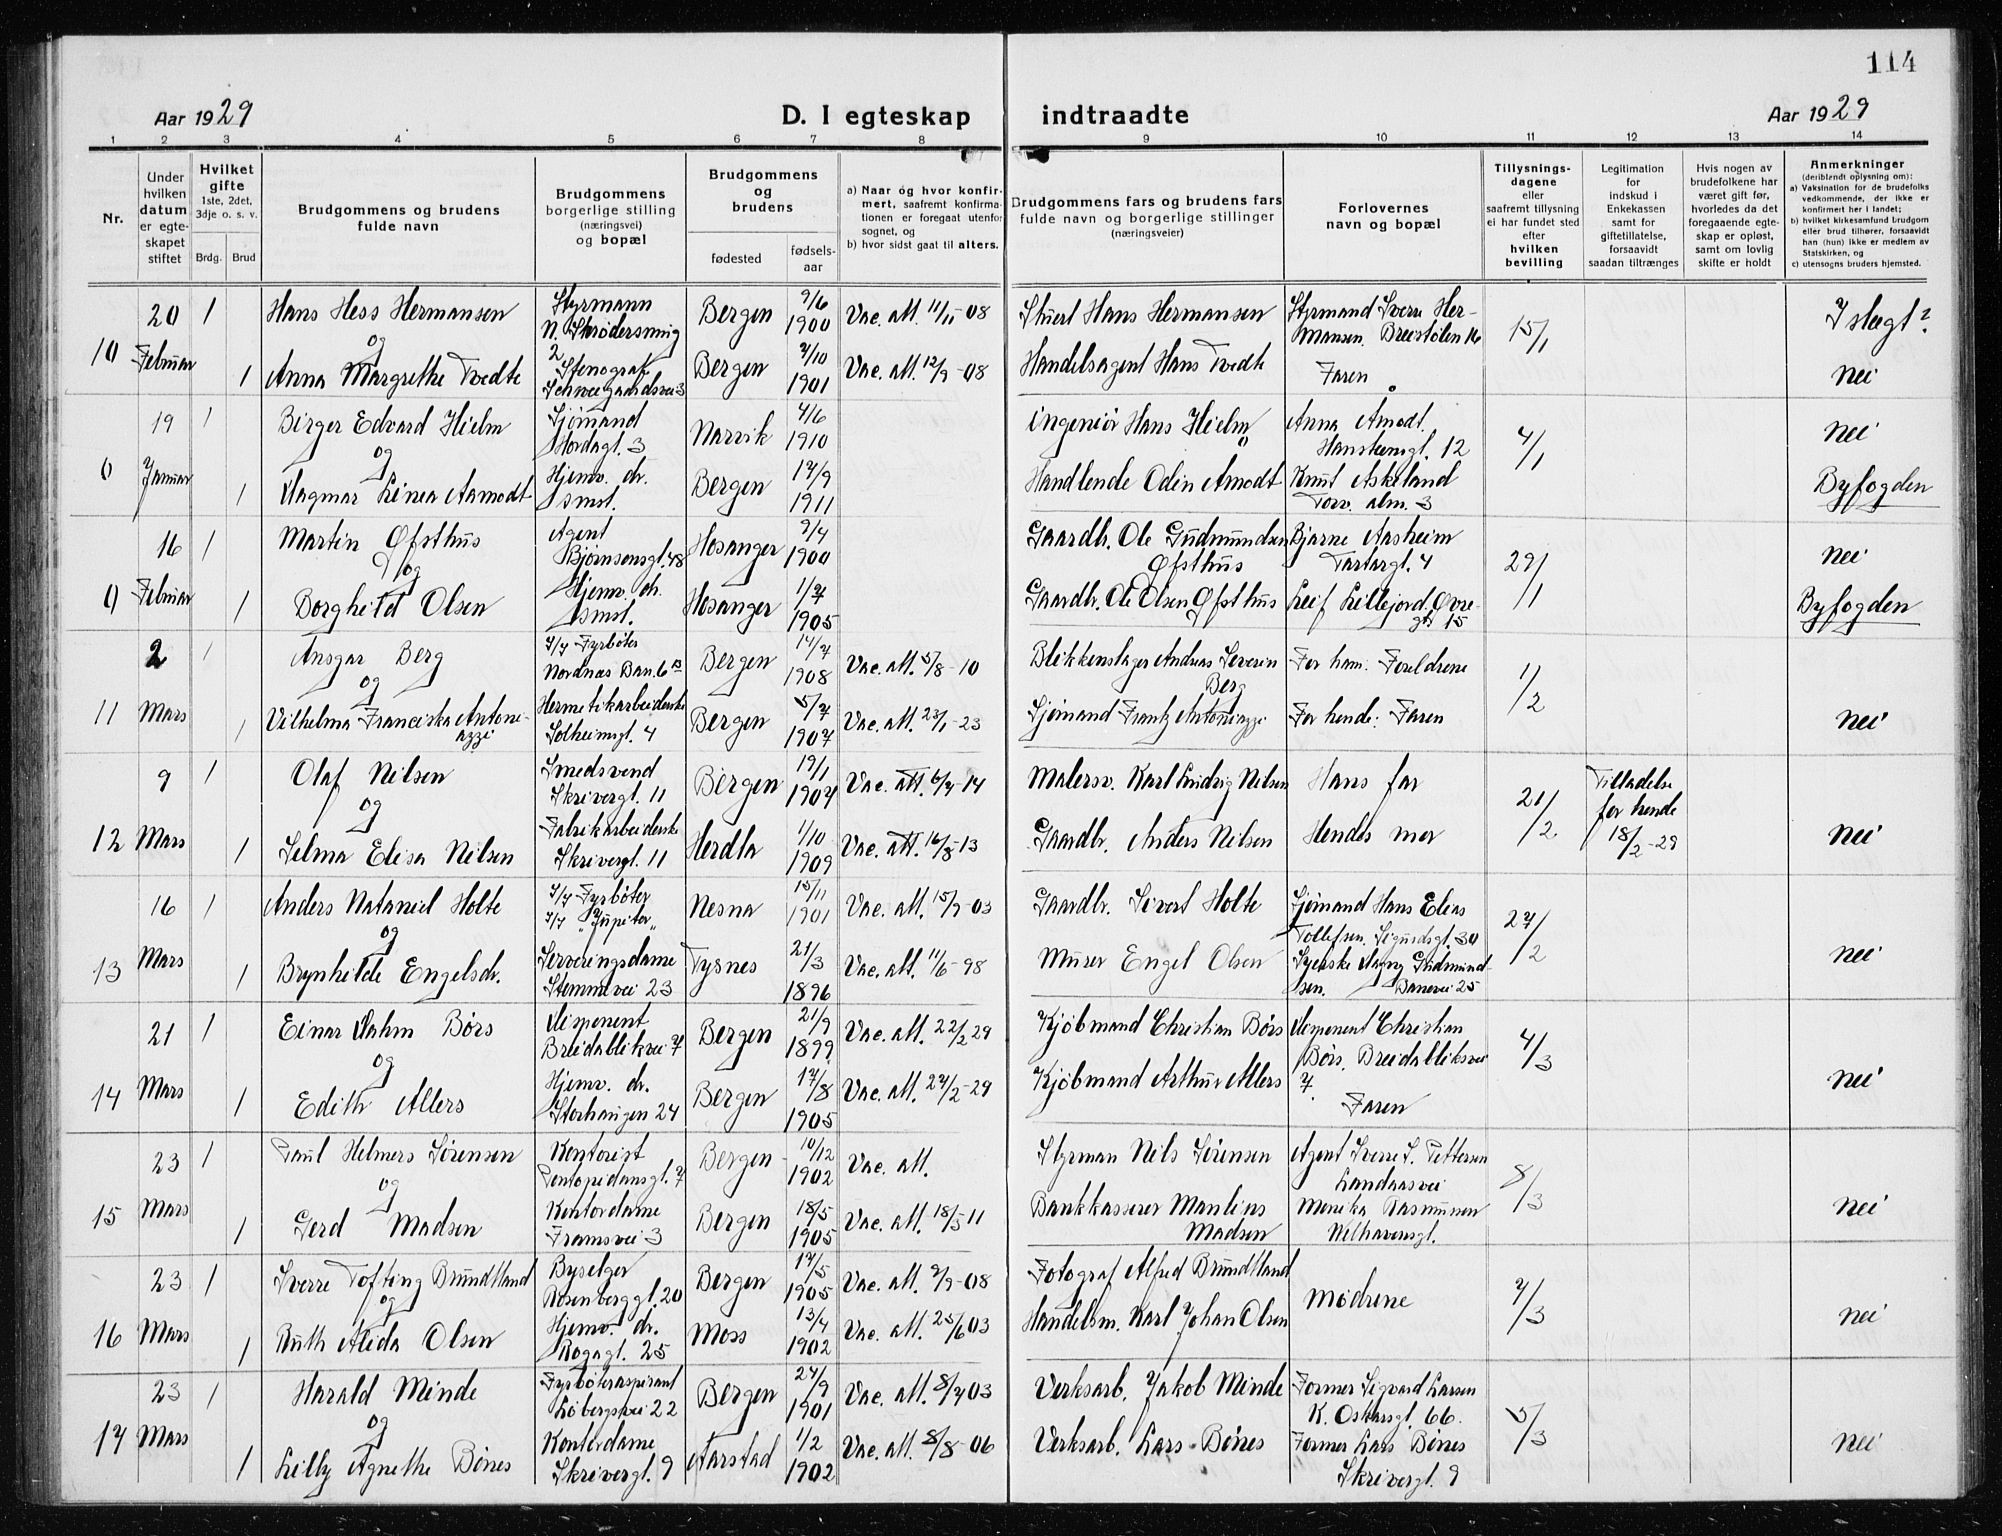 114
Aar 1929
D. I egteskap indtraadte
Aar 1929
1 2 3 4 5 6 7 8 9 10 11 12 13 14
Nr.
Under hvilken datum er egte-skapet stiftet
Hvilket gifte 1ste, 2det, 3dje o. s. v.
Brdg. Brud
Brudgommens og brudens fulde navn
Brudgommens borgerlige stilling (næringsvei) og bopæl
Brudgommens og brudens
fødested
fødsels-aar
a) Naar og hvor konfir-mert, saafremt konfirma-tionen er foregaat utenfor sognet, og
b) hvor sidst gaat til alters.
Brudgommens fars og brudens fars fulde navn og borgerlige stillinger (næringsveier)
Forlovernes navn og bopæl
Tillysnings-dagene eller saafremt tillysning ei har fundet sted efter hvilken bevilling
Legitimation for indskud i Enkekassen samt for giftetillatelse, forsaavidt saadan tiltrænges
Hvis nogen av brudefolkene har været gift før, hvorledes da det foregaaende egte-skap er opløst, samt om lovlig skifte er holdt
Anmerkninger (deriblendt oplysning om):
a) Vaksination for de brudefolks vedkommende, der ikke er konfirmert her i landet;
b) hvilket kirkesamfund brudgom eller brud tilhører, forsaavidt han (hun) ikke er medlem av Statskirken, og
c) utensogns bruders hjemsted.
20 1 Hans Hess Hermansen Styrmann N. Skrødersmug 2 Bergen 9/6 1900 Vac. att. 11/11-08 Stuert Hans Hermansen Styrmand Sverre Her-mansen. Breistølen 16 15/1 I slegt?
10 Februar og
1 Anna Margrethe Tvedte Stenograf Schweigaardsvei 3 Bergen 1901 Vac. att. 12/9-08 Handelsagent Hans Tvedte Faren nei
19 1 Birger Edvard Hielm Sjømand Hordagt. 3 Narvik 4/6 1910 Ingeniør Hans Hielm Anna Amodt. Hansteensgt. 12 4/1 nei
Januar og
1 Dagmar Linea Aamodt Hjemv. dr. smst. Bergen 1911 Handlende Odin Amodt Knut Askeland Torv. alm. 3 Byfogden
16 1 Martin Øfsthus Agent Bjørnsonsgt. 48 Hosanger 9/4 1900 Gaardbr. Ole Gudmundsen Øfsthus Bjarne Aasheim Tartargt. 4 29/1 nei
9 Februar og
1 Borghild Olsen Hjemv. dr. smst. Hosanger 1905 Gaardbr. Ole Olsen Øfsthus Leif Lillejord. Øvre-gt 15 Byfogden
2 1 Ansgar Berg Fyrbøter Nordnæs Ban. 6 B Bergen 1908 Vac. att. 5/8-10 Blikkenslager Andreas Severin Berg For ham: Foreldrene 1/2
11 Mars og
1 Vilhelma Franciska Antoni-azzi Hermetikarbeiderske Solheimsgt. 4 Bergen 1907 Vac. att. 23/1-23 Sjømand Frantz Antoniazzi For hende: Faren nei
9 1 Olaf Nilsen Smedsvend Skrivergt. 11 Bergen 19/1 1907 Vac. att. -14 Malersv. Karl Ludvig Nilsen Hans far 21/2 Tilladelse for hende 18/2-29
12 Mars og
1 Selma Elisa Nilsen Fabrikarbeiderske Skrivergt. 11 Herdla 1/10 1909 Vac. att. 16/8-13 Gaardbr. Anders Nilsen Hendes mor nei
16 1 Anders Nataniel Holte Fyrbøter "Jupiter" Nesna 15/11 1901 Vac. att. 15/9-03 Gaardbr. Sivert Holte Sjømand Hans Elias Tollefsen. Sigurdsgt. 30 27/2
13 Mars og
1 Brynhilde Engelsdr. Serveringsdame Stemmevei 23 Tysnes 21/3 1896 Vac. att. 11/6-98 Murer Engel Olsen Syerske Aagny Gudmund-sen. Banevei 25 nei
21 1 Einar Dahm Børs Disponent Breidablikvei 7 Bergen 21/9 1899 Vac. att. 22/2 29 Kjøbmand Christian Børs Disponent Christian Børs. Breidabliksvei 7. 4/3
14 Mars og
1 Edith Allers Hjemv. dr. Storhaugen 24 Bergen 17/8 1905 Vac. att. 27/2-29 Kjøbmand Arthur Allers Faren nei
23 1 Paul Helmers Sørensen Kontorist Pontopidansgt. 7 Bergen 10/12 1902 Vac. att. Styrman Nils Sørensen Agent Sverre S. Pettersen Landaasvei 8/3
15 Mars og
1 Gerd Madsen Kontordame Framsvei 3 Bergen 18/5 1905 Vac. att. 18/5 11 Bankkasserer Manlius Madsen Monika Rasmussen Welhavensgt. nei
23 1 Sverre Tofting Brundtland Byselger Rosenberggt. 20 Bergen 17/5 1905 Vac. att. 9/9-08 Fotograf Alfred Brundtland Mødrene 7/3
16 Mars og
1 Ruth Alida Olsen Hjemv. dr. Rogagt. 25 Moss 13/4 1902 Vac. att. 25/6 03 Handelsm. Karl Johan Olsen nei
23 1 Harald Minde Fyrbøteraspirant Løbergsvei 22 Bergen 27/9 1901 Vac. att. 03 Verksarb. Jakob Minde Former Sigvard Larsen K. Oskarsgt. 66. 5/3
17 Mars og
1 Lilly Agnethe Bønes Kontordame Skrivergt. 9 Aarstad 1/2 1902 Vac. att. 8/8-06 Verksarb. Lars Bønes Former Lars Bønes Skrivergt. 9 nei